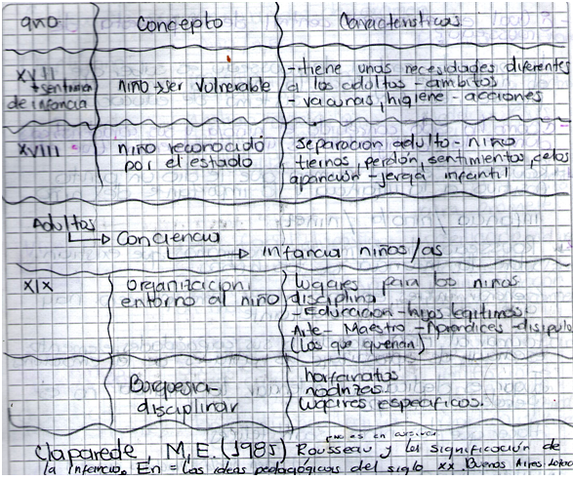 año concepto características
XVII niño → ser vulnerable - tiene unas necesidades diferentes
+ sentimiento a los adultos - ambitos
de infancia - vacunas, higiene - acciones
XVIII niño reconocido separacion adulto - niño
por el estado tiernos, perdón, sentimientos, celos
aparicion - jerga infantil
Adultos
→ Conciencia
→ infancia niños/as
XIX organizacion lugares para los niños
entorno al niño disciplina
- Educacion - hijos legitimos.
Arte - Maestro - Aprendices - disipulo
(Los que querian)
Burquesia - horfanatos
disciplinar nodrizas
lugares especificos.
Claparede, M.E. (1985) Rousseau y la significación de
la infancia. En = Las ideas pedagógicas del siglo XX. Buenos Aires